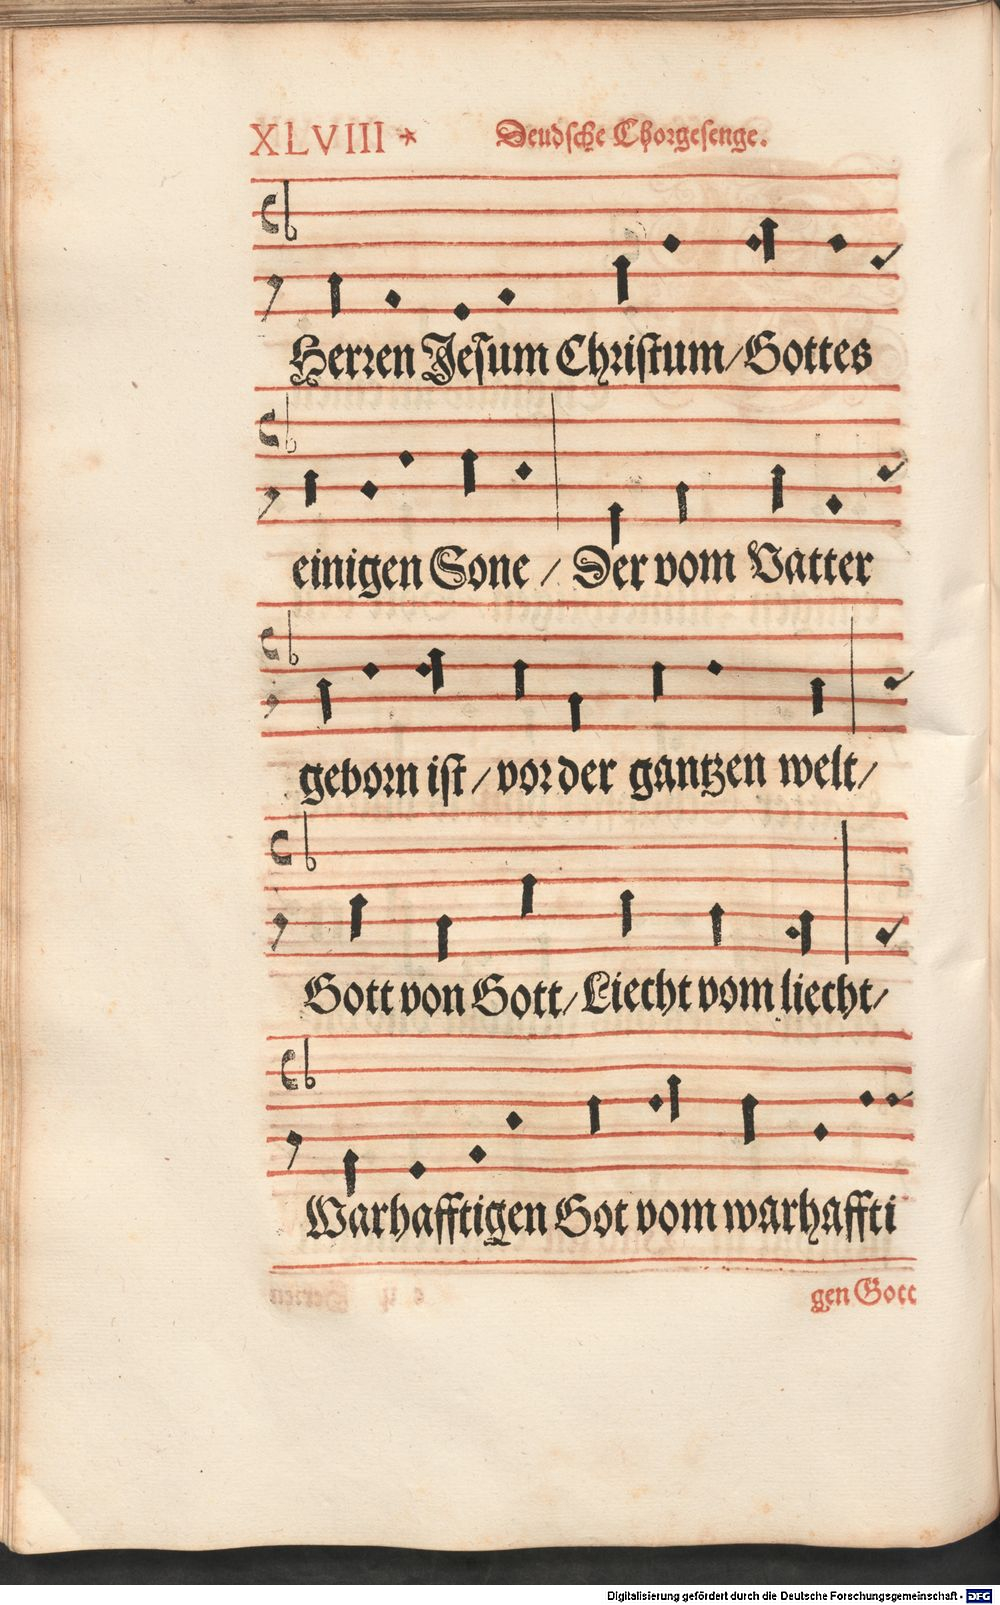 XLVIII * Deudsche Chorgesenge.
Herren Jesum Christum/Gottes
einigen Sone / Der vom Vatter
geborn ist/vor der gantzen welt/
Gott von Gott/Liecht vom liecht/
Warhafftigen Got vom warhaffti
gen Gott
Digitalisierung gefördert durch die Deutsche Forschungsgemeinschaft - DFG